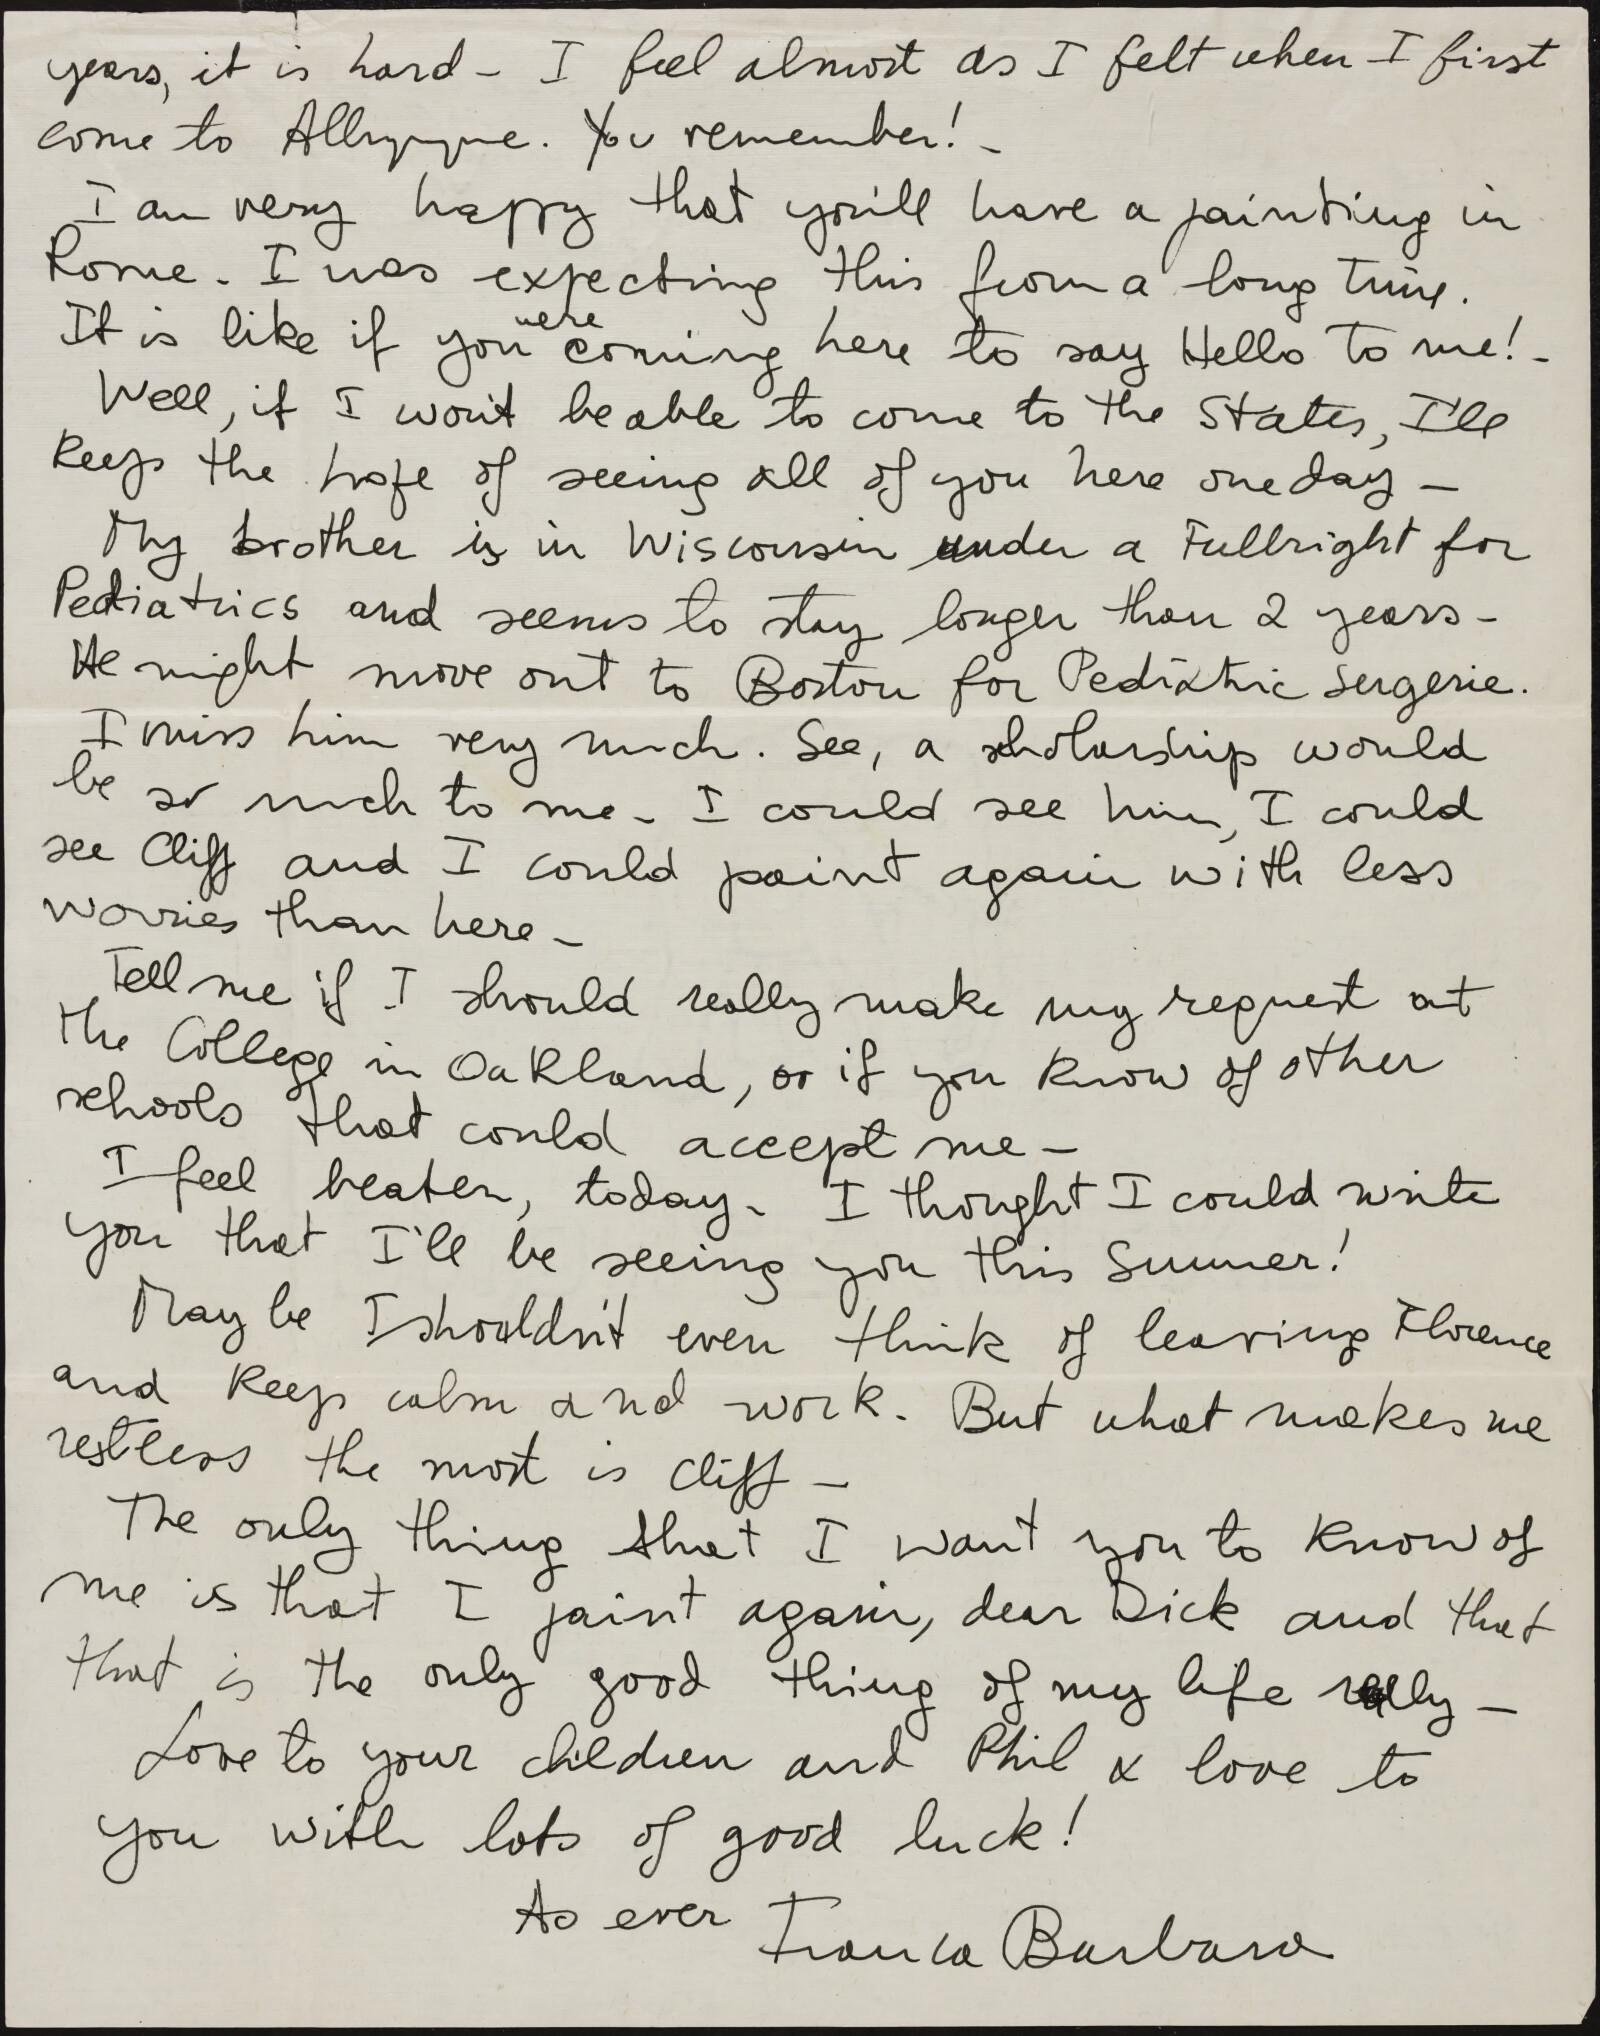 years, it is hard - I feel almost as I felt when I first
come to Albuquque. You remember! -
I am very happy that you'll have a painting in
Rome. I was expecting this from a long time.
It is like if you were coming here to say Hello to me! -
Well, if I won't be able to come to the States, I'll
keep the hope of seeing all of you here one day -
My brother is in Wisconsin under a Fullbright for
Pediatrics and seems to stay longer than 2 years -
He might move out to Boston for Pediatric Sergerie.
I miss him very much. See, a scholarship would
be so much to me - I could see him, I could
see Cliff and I could paint again with less
worries than here -
Tell me if I should really make my request at
the College in Oakland, or if you know of other
schools that could accept me -
I feel beaten, today - I thought I could write
you that I'll be seeing you this Summer!
May be I shouldn't even think of leaving Florence
and keep calm and work. But what makes me
restless the most is Cliff -
The only thing that I want you to know of
me is that I paint again, dear Dick and that
that is the only good thing of my life really -
Love to your children and Phil & love to
you with lots of good luck!
As ever Franca Barbara